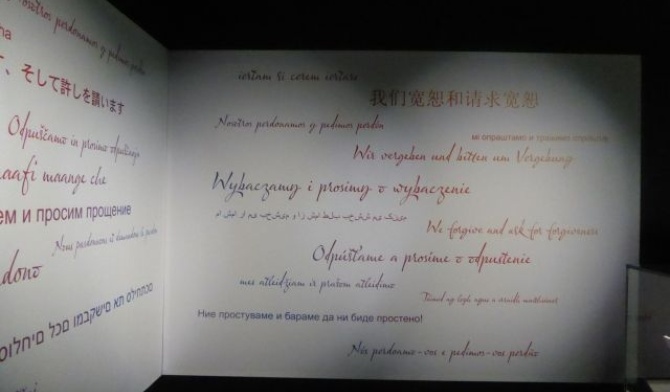 Nosotros perdonamos y pedimos perdón
、そして許しを請います
Odpuščamo in prosimo odpuščanja
maafi maange che
ем и просим прощение
Nous pardonnons et demandons le pardon
סולחים לכם ומבקשים את סליחתכם
iertăm și cerem iertare
我们宽恕和请求宽恕
Nosotros perdonamos y pedimos perdón
Wir vergeben und bitten um Vergebung
Wybaczamy i prosimy o wybaczenie
We forgive and ask for forgiveness
Odpúšťame a prosíme o odpustenie
mes atleidžiam ir prašom atleidimo
Ние простуваме и бараме да ни биде простено!
Nós perdoamo-vos e pedimos-vos perdão